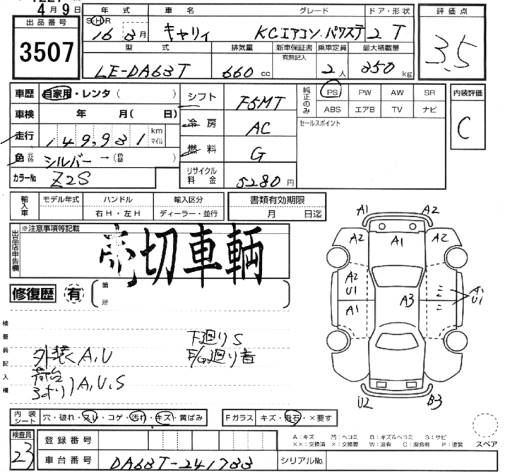 4月9日
出品番号 年式 車名 グレード ドア・形状 評価点
3507 S・H・R 16年3月 キャリィ KCエアコン・パワステ 2T 3.5
型式 排気量 新車保証書 有無記入 乗車定員 最大積載量
LE-DA63T 660cc 2人 350kg
車歴 自家用・レンタ( ) シフト F5MT 純正のみ PS PW AW SR 内装評価
車検 年 月(日) 冷房 AC ABS エアB TV ナビ C
走行 149,931 km マイル 燃料 G セールスポイント
色 シルバー→
カラーNo Z2S リサイクル料金 5280円
輸入車 モデル年式 ハンドル 輸入区分 書類有効期限
右H・左H ディーラー・並行 月 日迄
出品店申告欄 ※注意事項等記載
切車輌
修復歴 有
検査員記入欄
外装 A,U
荷台 A,U,S
下廻りS
A1 A2
A2 A1 A2
A2
U1
A1
A3
A1
U1
U2 B3
内装シート 穴・破れ・スレ・コゲ・汚れ・キズ・黄ばみ Fガラス キズ・飛石・×要す
A:キズ U:ヘコミ B:キズ&ヘコミ S:サビ
××:交換済 X:要交換 W:波有 C:腐食有 P:塗装
スペア
検査員 23 登録番号
車台番号 DA63T-241733 シリアルNo